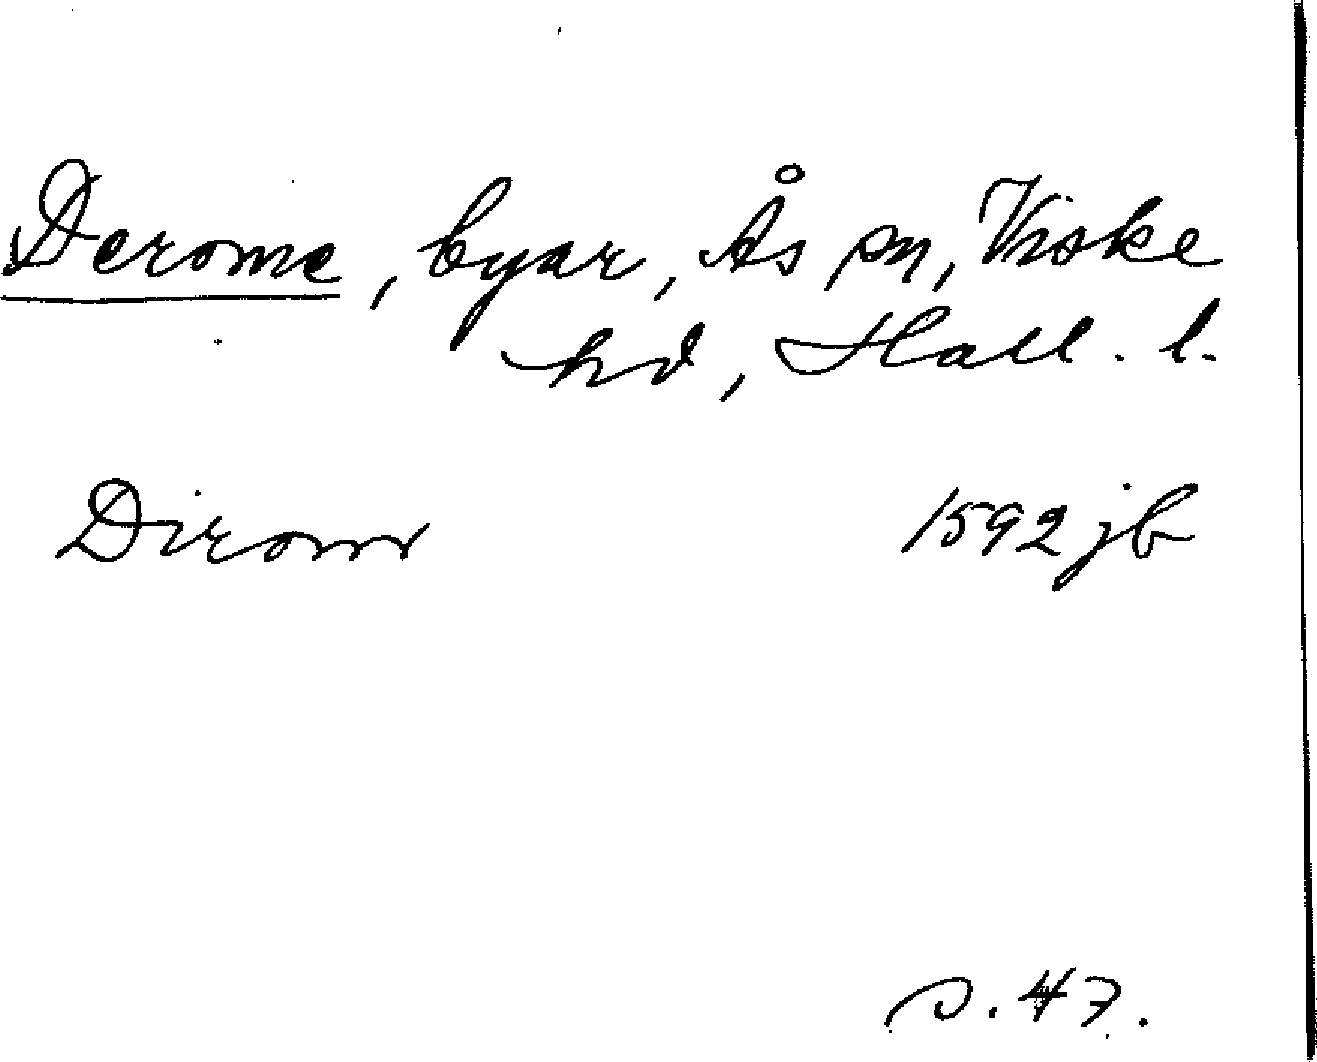 Derome, byar, Ås sn, Viske
hd, Hall. l.
Dirom 1592 jb
s. 47.